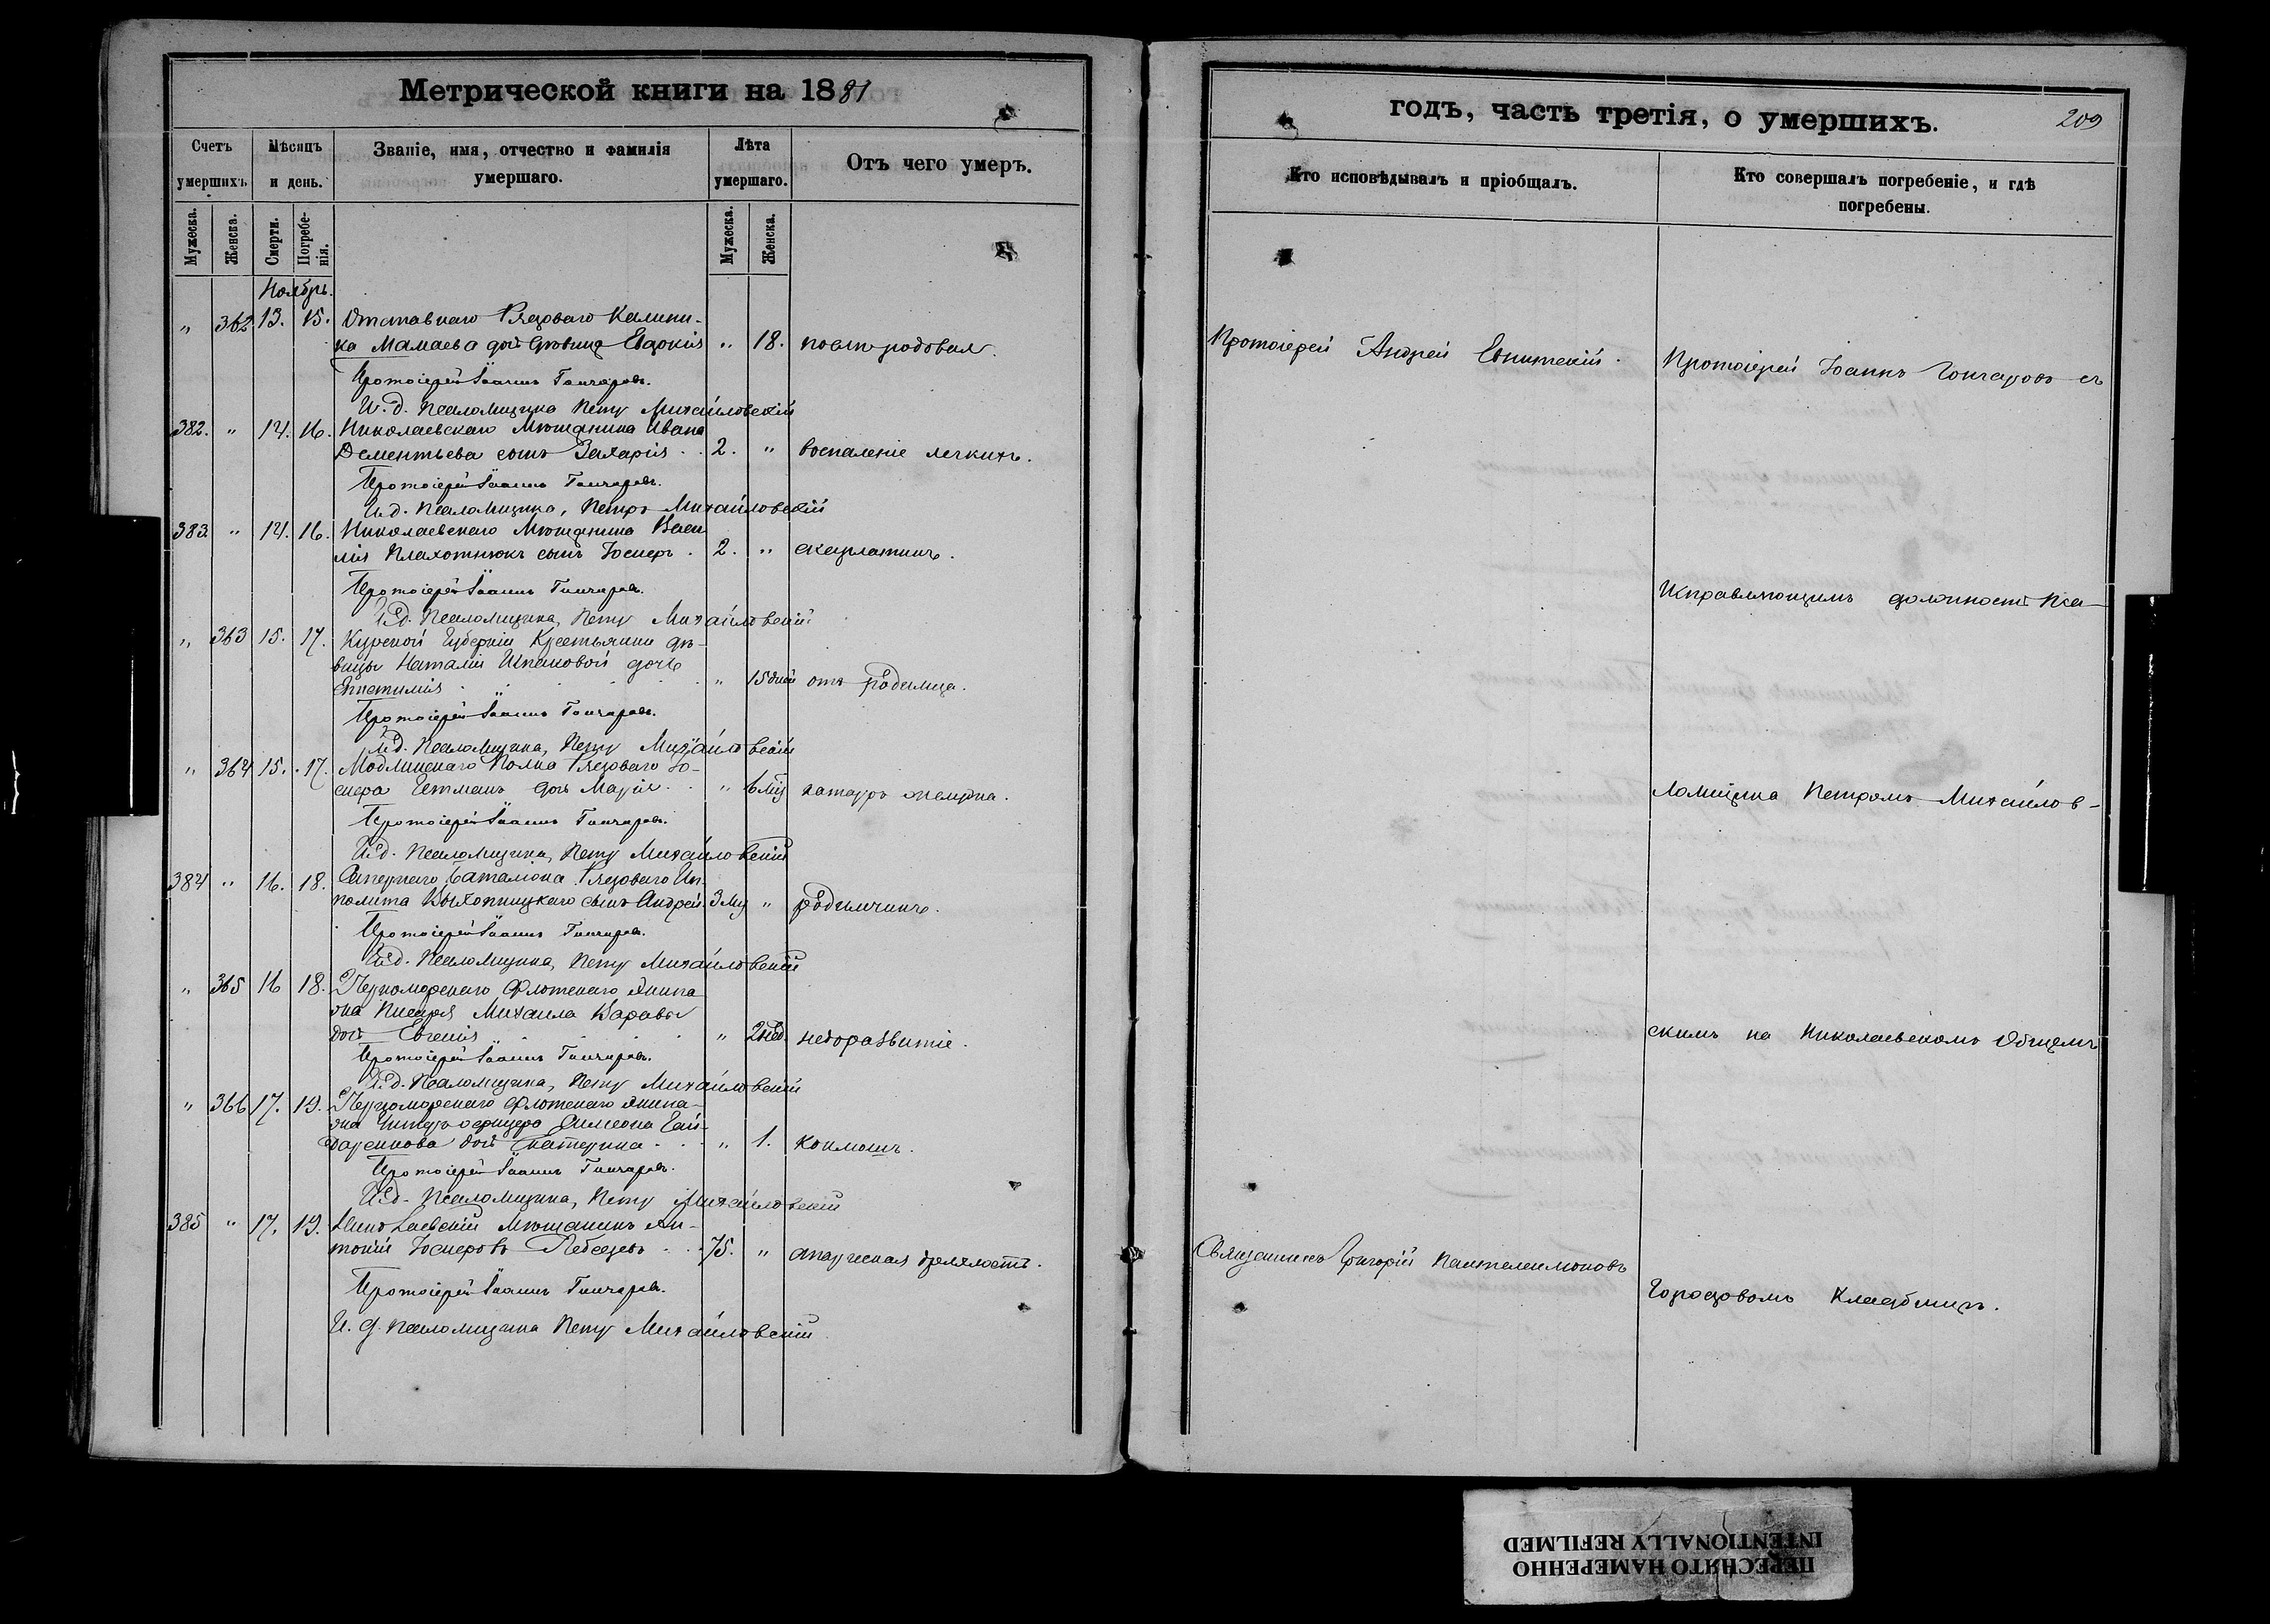 Метрической книги на 1881
Счетъ умершихъ.
Мѣсяцъ и день.
Званіе, имя, отчество и фамилія умершаго.
Лѣта умершаго.
Отъ чего умеръ.
Мужеска.
Женска.
Смерти.
Погребенія.
Мужеска.
Женска.
Ноябрь.
" 362 13. 15. Отставнаго Рядоваго Калини-
ка Мамаева дочь девица Евдокія " 18.
Протоіерей Іоаннъ Гончаровъ.
И. д. псаломщика Петръ Михайловскій
382. " 14. 16. Николаевскаго Мѣщанина Ивана
Дементьева сынъ Захарія . . 2. " воспаленіе легкихъ.
Протоіерей Іоаннъ Гончаровъ.
И.д. Псаломщика, Петръ Михайловскій
383. " 14. 16. Николаевскаго Мѣщанина Васи
лія Плахотнюкъ сынъ Іосифъ . 2. " скарлатинъ.
Протоіерей Іоаннъ Гончаровъ.
И.д. Псаломщика, Петръ Михайловскій
" 363 15. 17. Курской Губерніи Крестьянки дѣ-
вицы Наталіи Шпаковой дочь
" 15 дней отъ родимца.
Протоіерей Іоаннъ Гончаровъ.
И.д. Псаломщика, Петръ Михайловскій
" 364 15. 17. Модлинскаго Полка Рядоваго Іо-
сифа Гетманъ дочь Марія . . " 6 мѣс катаръ желудка.
Протоіерей Іоаннъ Гончаровъ.
И.д. Псаломщика, Петръ Михайловскій
384 " 16. 18. Сапернаго Баталіона Рядоваго Ип-
полита сынъ Андрей. 3 мѣс " родимчикъ.
Протоіерей Іоаннъ Гончаровъ.
И.д. Псаломщика, Петръ Михайловскій
" 365 16 18. Черноморскаго Флотскаго Экипа
жа Писаря Михаила Каравы
дочь Евгенія . . . " 2 нед. неборазвитіе.
Протоіерей Іоаннъ Гончаровъ.
И.д. Псаломщика, Петръ Михайловскій
" 366 17. 19. Черноморскаго Флотскаго Экипа-
жа Унтеръ офицера Симеона Гай-
даренкова дочь Екатерина . . " 1. коклюшъ.
Протоіерей Іоаннъ Гончаровъ.
И.д. Псаломщика, Петръ Михайловскій
385 " 17. 19. Николаевскій Мѣщанинъ Ан-
тоній Іосифовъ Лебедевъ . . 75. " старческая дряхлость.
Протоіерей Іоаннъ Гончаровъ.
И. д. псаломщика Петръ Михайловскій
годъ, часть третія, о умершихъ.
209
Кто исповѣдывалъ и пріобщалъ.
Кто совершалъ погребеніе, и гдѣ погребены.
Протоіерей Андрей
Протоіерей Іоаннъ Гончаровъ съ
Исправляющимъ должность Пса-
ломщика Петромъ Михайлов-
скимъ на Николаевскомъ Общемъ
Священникъ Григорій Пантелеимоновъ
Городовомъ Кладбищѣ.
ПЕРЕСНЯТО НАМЕРЕННО
INTENTIONALLY REFILMED